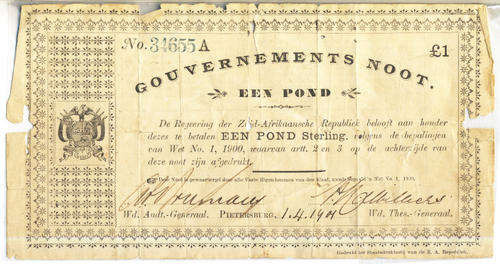 No. 34655 A £1
GOUVERNEMENTS NOOT.
EEN POND
De Regeering der Zuid-Afrikaansche Republiek belooft aan houder
dezes te betalen EEN POND Sterling, volgens de bepalingen
van Wet No. 1, 1900, waarvan artt. 2 en 3 op de achterzijde van
deze noot zijn afgedrukt.
Deze Noot is gewaarborgd door alle Vaste Eigendommen van den Staat, Wet No. 1, 1900.
Wd. Audt.-Generaal. PIETERSBURG, 1.4.1901 Wd. Thes.-Generaal.
Gedrukt ter Staatsdrukkerij van de Z. A. Republiek.